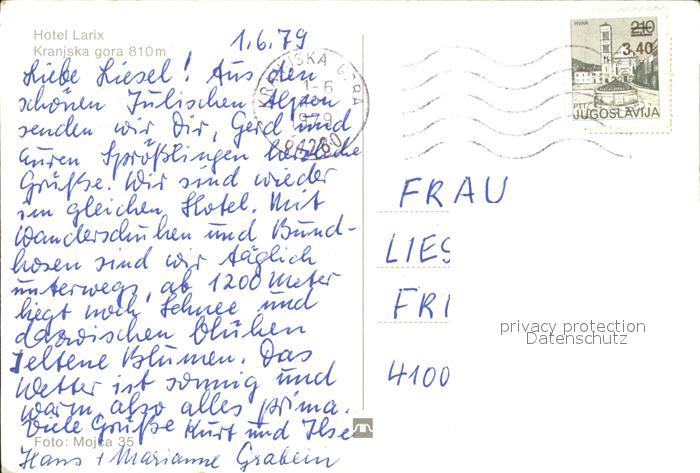 Hotel Larix
Kranjska gora 810 m
1.6.79
Liebe Liesel! Aus den
schönen Julischen Alpen
senden wir Dir, Gerd und
Euren Sprößlingen herzliche
Grüße. Wir sind wieder
im gleichen Hotel. Mit
Wanderschuhen und Bund-
hosen sind wir täglich
unterwegs, ab 1200 Meter
liegt noch Schnee und
dazwischen blühen
seltene Blumen. Das
Wetter ist sonnig und
warm, also alles prima.
Viele Grüße Kurt und Ilse
Foto: Mojca 35
Hans + Marianne Grabein
KRANJSKA GORA
1-6
1979
64280
HVAR
2.10
3,40
PTT
JUGOSLAVIJA
FRAU
LIES
FRI
4100
privacy protection
Datenschutz